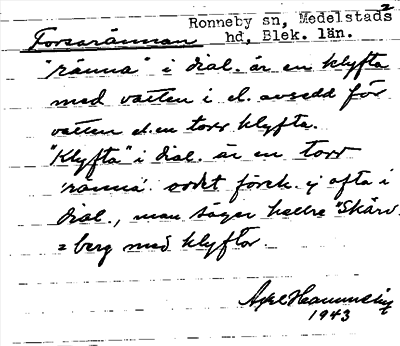 2
Ronneby sn, Medelstads
hd, Blek. län.
Forsarännan
"ränna" i dial. är en klyfta
med vatten i el. avsedd för
vatten el. en torr klyfta.
"Klyfta" i dial. är en torr
'ränna'. ordet förek. ej ofta i
dial., man säger hellre "Skärv-
=berg med klyftor
Axel Hemming
1943